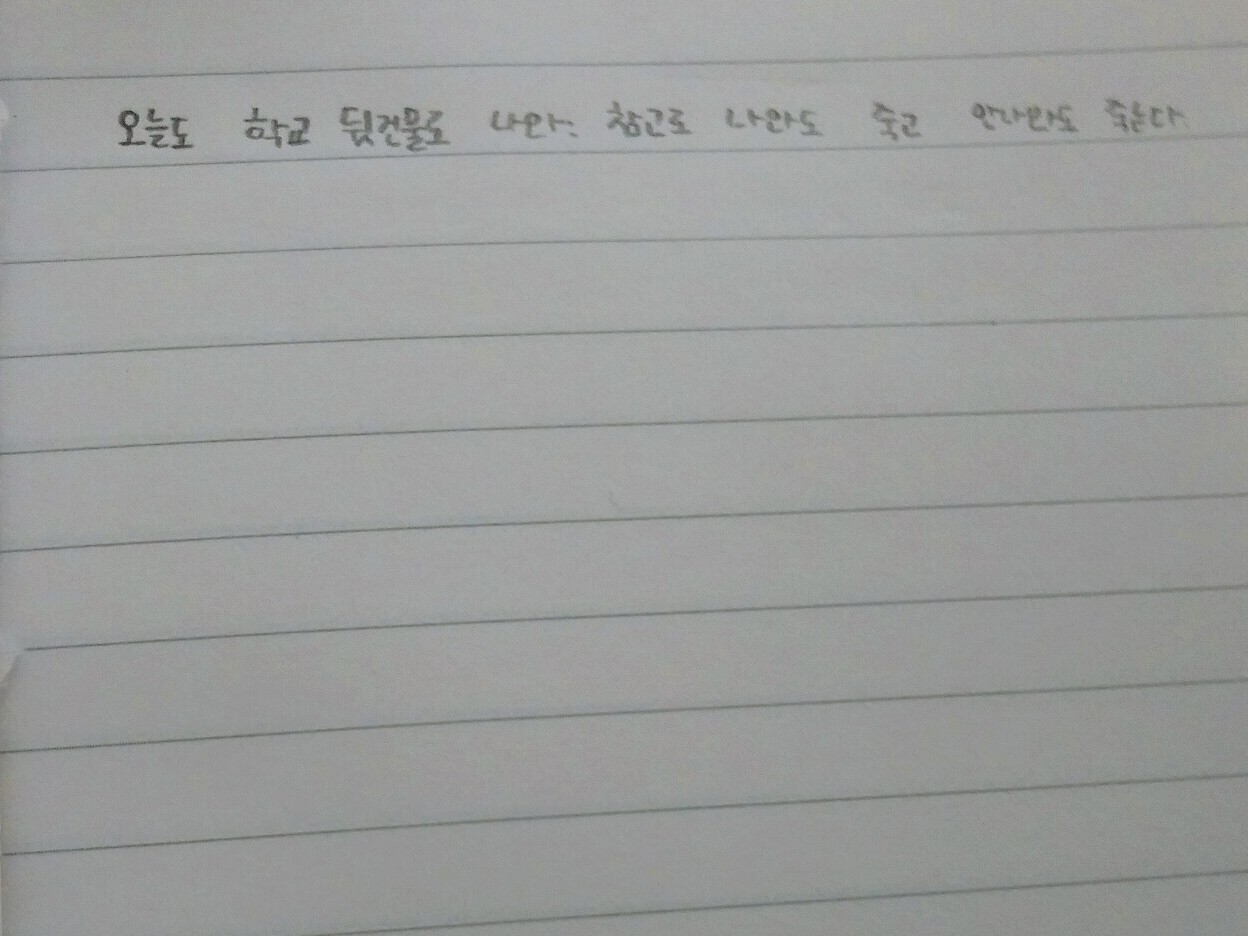 오늘도 학교 뒷건물로 나와. 참고로 나와도 죽고 안나와도 죽는다.